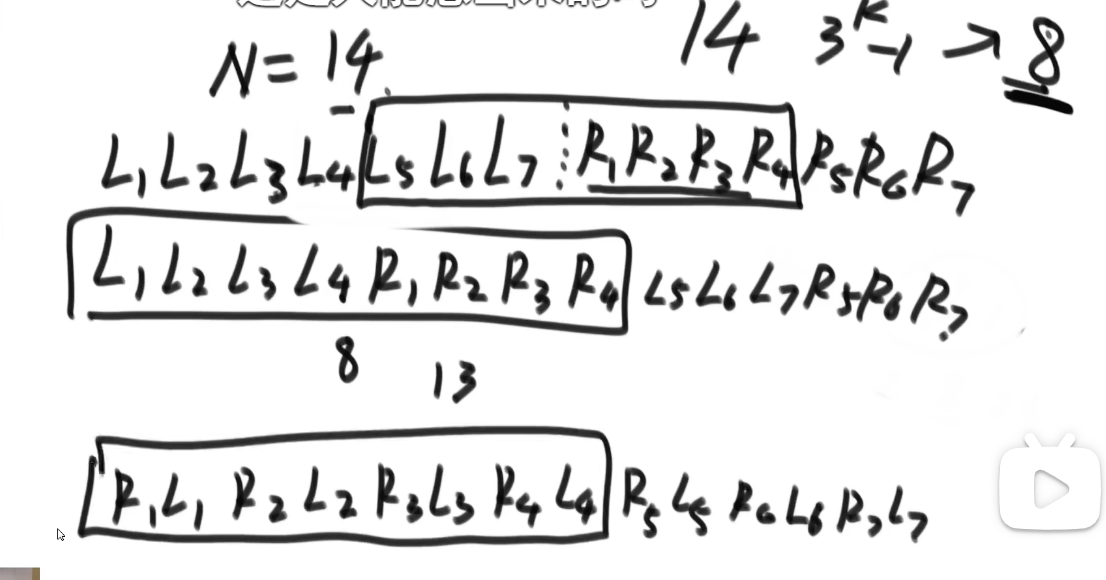 N = 14
14 3^k-1 → 8
L1 L2 L3 L4 L5 L6 L7 R1 R2 R3 R4 R5 R6 R7
L1 L2 L3 L4 R1 R2 R3 R4 L5 L6 L7 R5 R6 R7
8 13
R1 L1 R2 L2 R3 L3 R4 L4 R5 L5 R6 L6 R7 L7